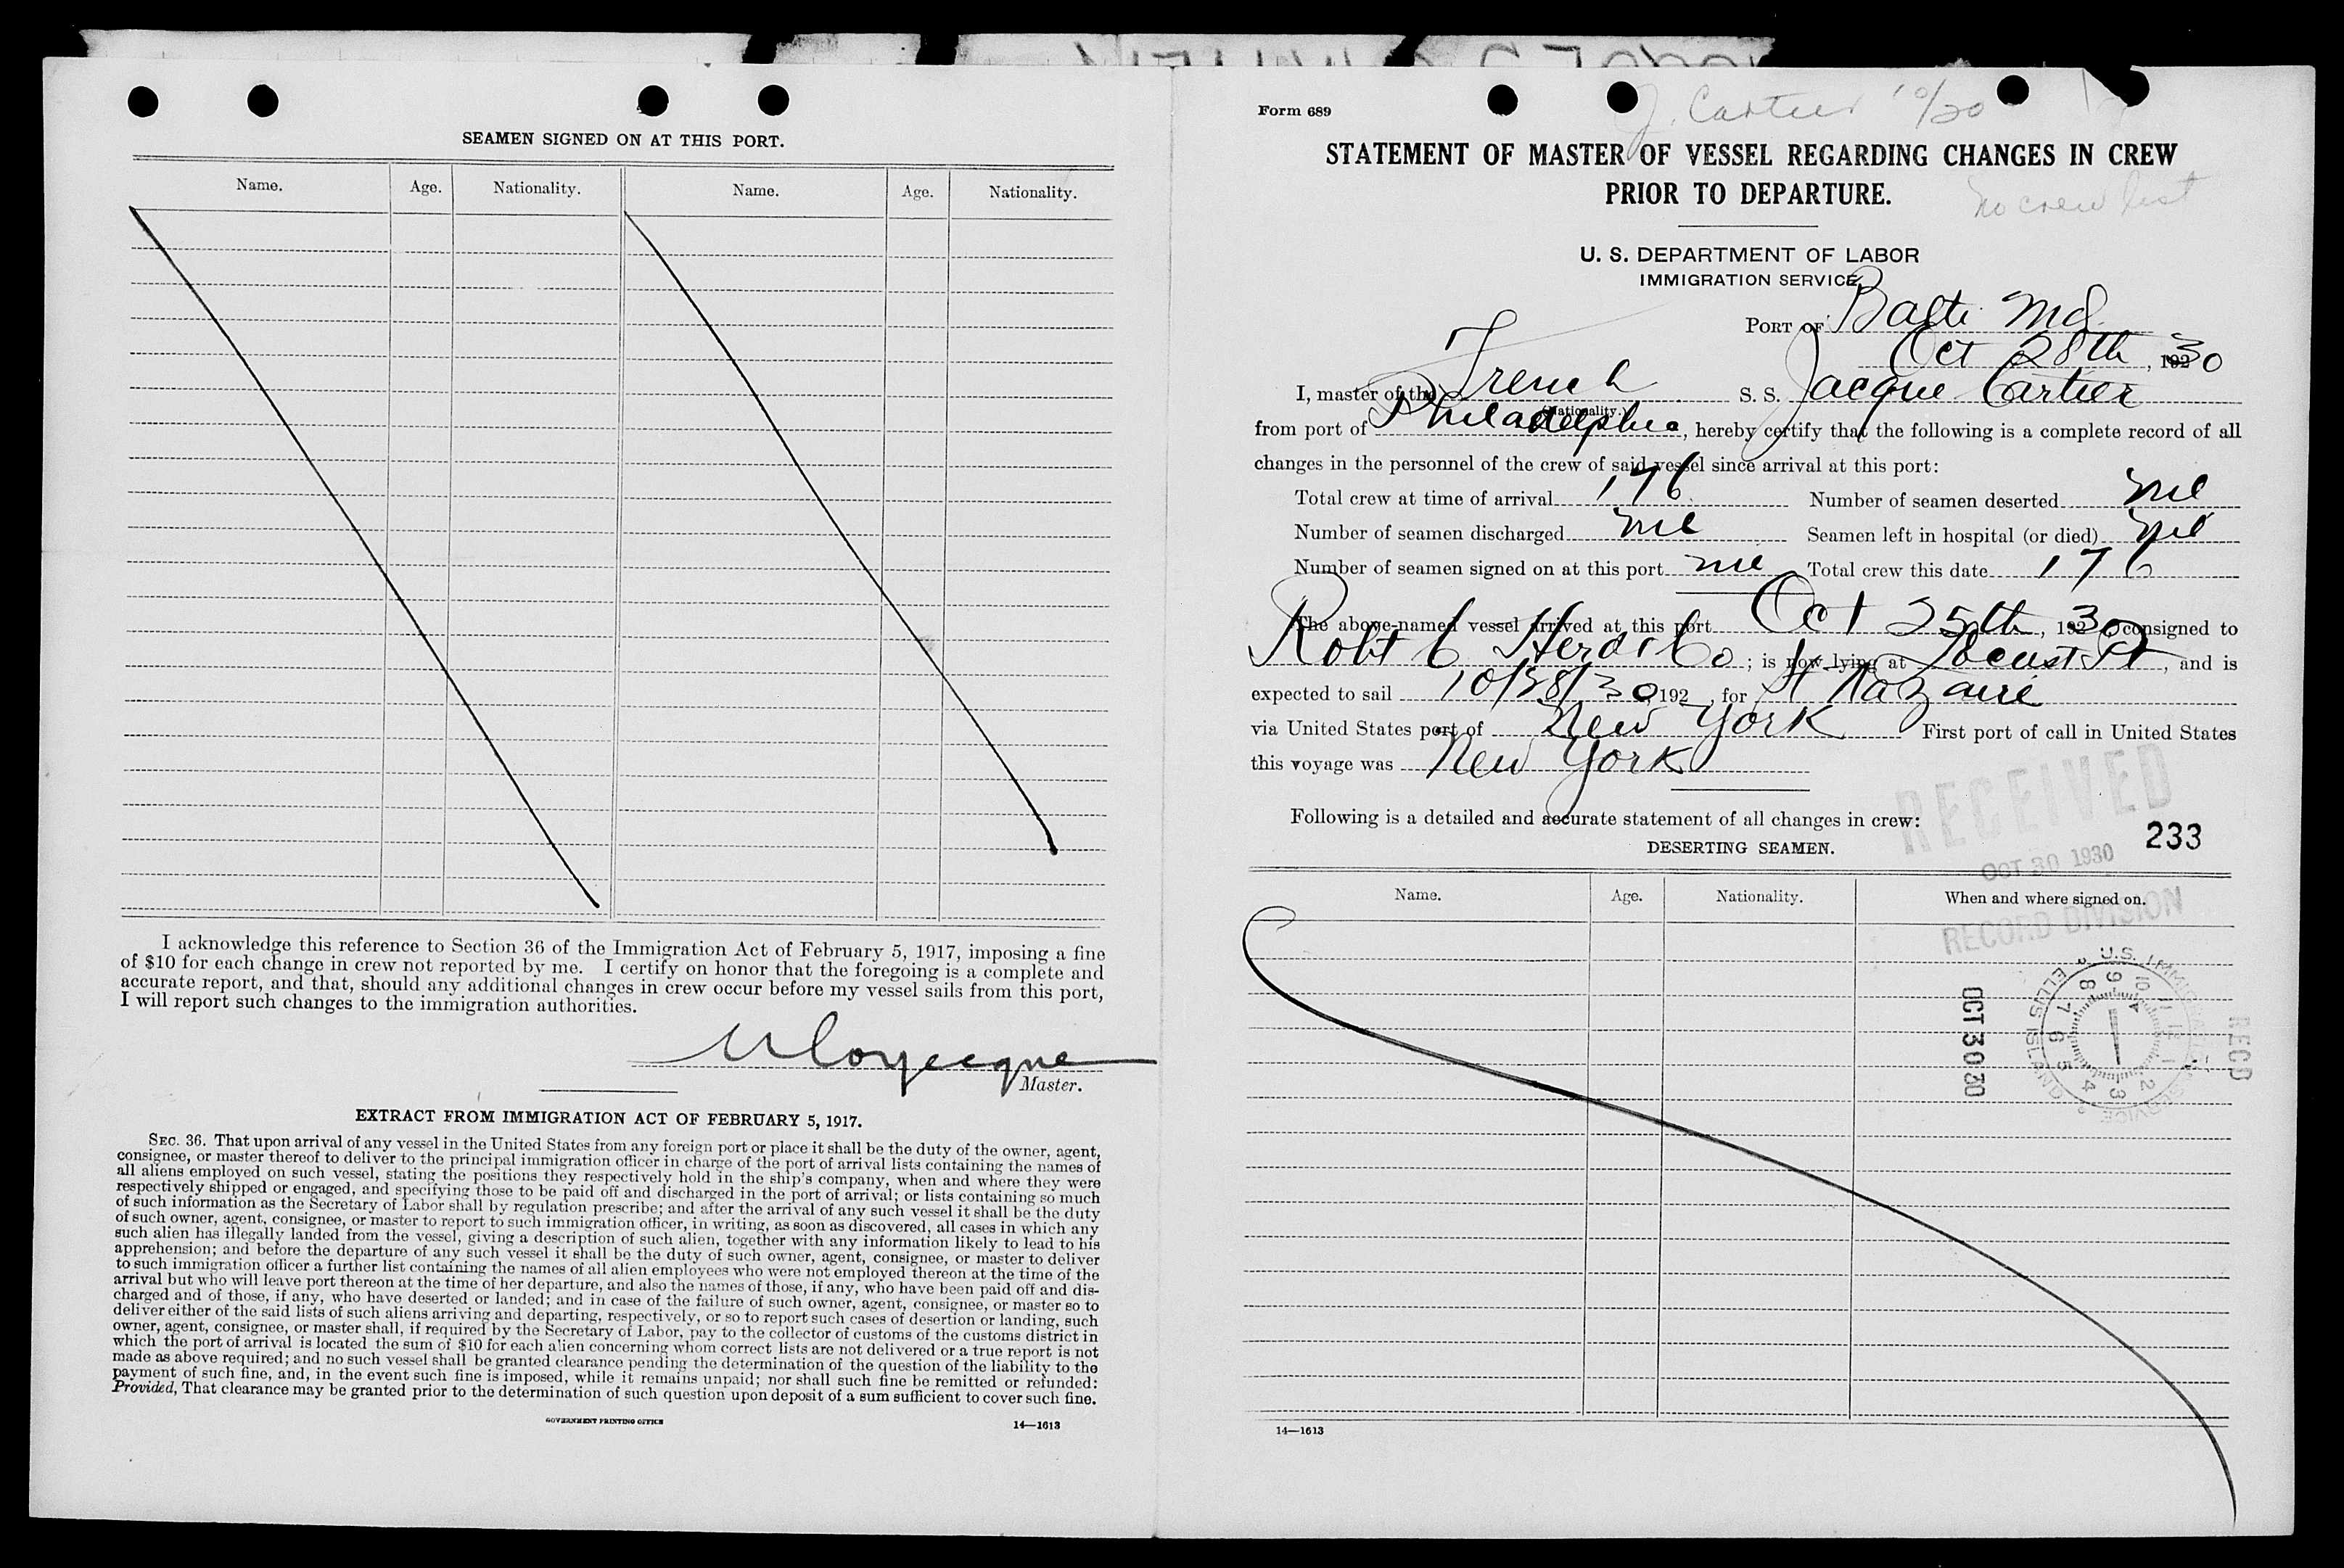 SEAMEN SIGNED ON AT THIS PORT.
Name. Age. Nationality. Name. Age. Nationality.
I acknowledge this reference to Section 36 of the Immigration Act of February 5, 1917, imposing a fine
of $10 for each change in crew not reported by me. I certify on honor that the foregoing is a complete and
accurate report, and that, should any additional changes in crew occur before my vessel sails from this port,
I will report such changes to the immigration authorities.
Master.
EXTRACT FROM IMMIGRATION ACT OF FEBRUARY 5, 1917.
SEC. 36. That upon arrival of any vessel in the United States from any foreign port or place it shall be the duty of the owner, agent,
consignee, or master thereof to deliver to the principal immigration officer in charge of the port of arrival lists containing the names of
all aliens employed on such vessel, stating the positions they respectively hold in the ship's company, when and where they were
respectively shipped or engaged, and specifying those to be paid off and discharged in the port of arrival; or lists containing so much
of such information as the Secretary of Labor shall by regulation prescribe; and after the arrival of any such vessel it shall be the duty
of such owner, agent, consignee, or master to report to such immigration officer, in writing, as soon as discovered, all cases in which any
such alien has illegally landed from the vessel, giving a description of such alien, together with any information likely to lead to his
apprehension; and before the departure of any such vessel it shall be the duty of such owner, agent, consignee, or master to deliver
to such immigration officer a further list containing the names of all alien employees who were not employed thereon at the time of the
arrival but who will leave port thereon at the time of her departure, and also the names of those, if any, who have been paid off and dis-
charged and of those, if any, who have deserted or landed; and in case of the failure of such owner, agent, consignee, or master so to
deliver either of the said lists of such aliens arriving and departing, respectively, or so to report such cases of desertion or landing, such
owner, agent, consignee, or master shall, if required by the Secretary of Labor, pay to the collector of customs of the customs district in
which the port of arrival is located the sum of $10 for each alien concerning whom correct lists are not delivered or a true report is not
made as above required; and no such vessel shall be granted clearance pending the determination of the question of the liability to the
payment of such fine, and, in the event such fine is imposed, while it remains unpaid; nor shall such fine be remitted or refunded:
Provided, That clearance may be granted prior to the determination of such question upon deposit of a sum sufficient to cover such fine.
GOVERNMENT PRINTING OFFICE 14—1613
Form 689
J. Cartier 10/30
STATEMENT OF MASTER OF VESSEL REGARDING CHANGES IN CREW
PRIOR TO DEPARTURE.
No crew list
U. S. DEPARTMENT OF LABOR
IMMIGRATION SERVICE
PORT OF Balto Md
Oct 28th, 1930
I, master of the French S. S. Jacque Cartier
(Nationality.)
from port of Philadelphia, hereby certify that the following is a complete record of all
changes in the personnel of the crew of said vessel since arrival at this port:
Total crew at time of arrival 176 Number of seamen deserted nil
Number of seamen discharged nil Seamen left in hospital (or died) nil
Number of seamen signed on at this port nil Total crew this date 176
The above-named vessel arrived at this port Oct 25th, 1930 consigned to
Robt C Herd & Co; is now lying at Locust Pt, and is
expected to sail 10/28/30 192 , for St Nazaire
via United States port of New York First port of call in United States
this voyage was New York
Following is a detailed and accurate statement of all changes in crew:
RECEIVED
OCT 30 1930
RECORD DIVISION
233
DESERTING SEAMEN.
Name. Age. Nationality. When and where signed on.
OCT 30 30
U.S. IMMIGRATION SERVICE ELLIS ISLAND
REC'D
14—1613